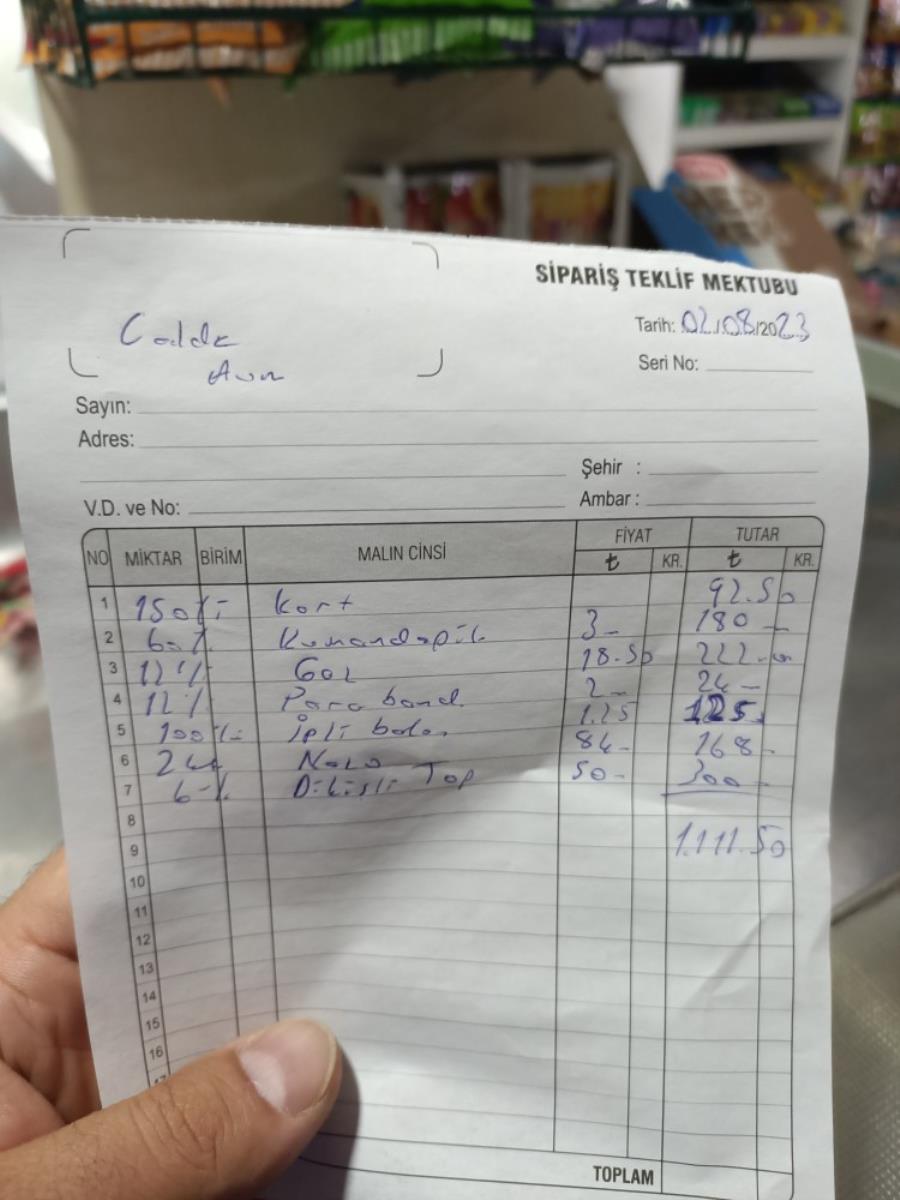 SİPARİŞ TEKLİF MEKTUBU
Tarih: 02/08/2023
Cadde
Seri No:
Sayın:
Adres:
Şehir :
V.D. ve No:
Ambar :
NO MİKTAR BİRİM MALIN CİNSİ FİYAT TUTAR
₺ KR. ₺ KR.
1 150 Kart 92.50
2 60 Kumanda pil 3- 180-
3 12 18.50 222.-
4 12 Para band 2- 24-
5 100 İpli balon 1.25 125.
6 2 84- 168-
7 6 Dikişli Top 50- 300-
8
9 1.111.50
10
11
12
13
14
15
16
TOPLAM